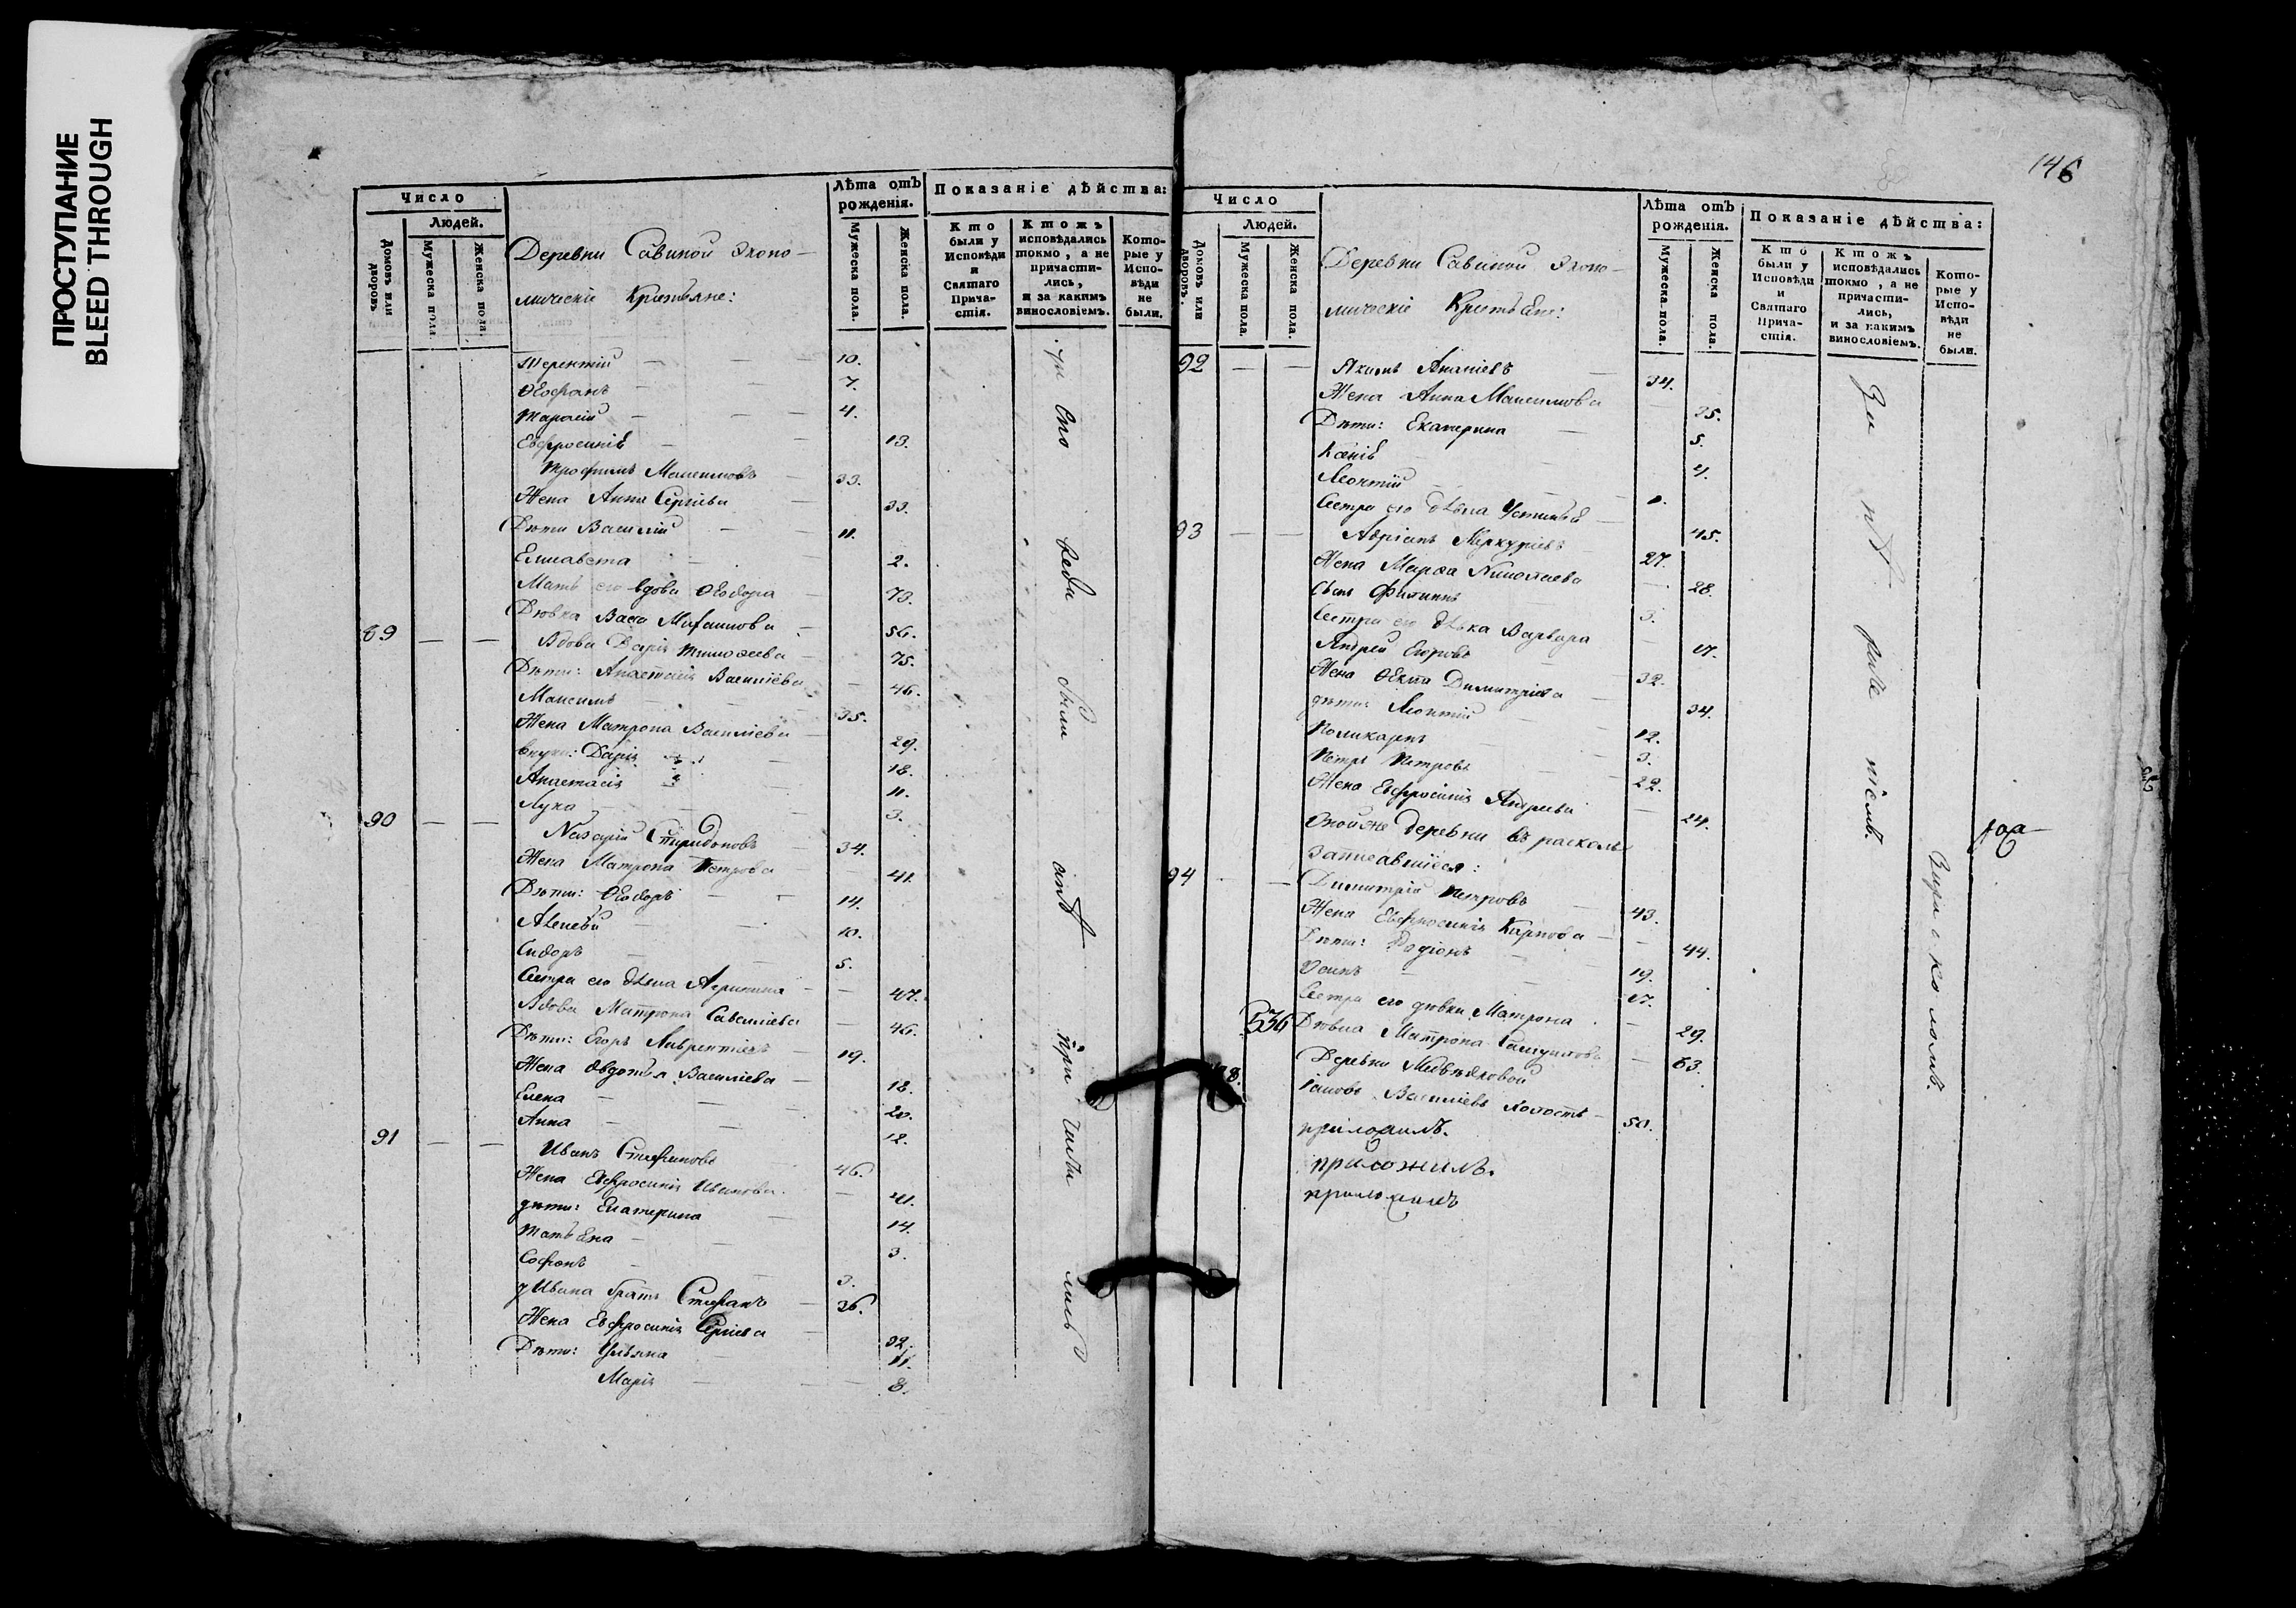 ПРОСТУПАНИЕ
BLEED THROUGH
Число
Людей.
Домовъ или дворовъ
Мужеска пола.
Женска пола.
Деревни Савиной Эконо-
мическіе Крестьяне:
Лѣта отъ рожденія.
Мужеска пола.
Женска пола.
Показаніе дѣйства:
Кто были у Исповѣди и Святаго Причастія.
Ктожъ исповѣдались токмо, а не причастились, и за какимъ винословіемъ.
Которые у Исповѣди не были.
Терентій 10.
Ѳеофанъ 7.
Тарасій 4.
Евфросинія 13.
Трофимъ Максимовъ 33.
Жена Анна Сергіева 33.
Дѣти Василій 11.
Елисавета 2.
Мать его вдова Ѳеодора 73.
Дѣвка Васса 56.
89 Вдова Дарія Тимоѳеева 75.
Дѣти: Анастасія Василіева 46.
Максимъ 35.
Жена Матрона Василіева 29.
внуки: Дарія 18.
Анастасія 11.
Лука 3.
90 Назарій Спиридоновъ 34.
Жена Матрона Петрова 41.
Дѣти: Ѳеодоръ 14.
Алексѣй 10.
Сидоръ 5.
Сестра его дѣвка Агрипина 47.
Вдова Матрона Савелиева 46.
Дѣти: Егоръ Лаврентіевъ 19.
Жена Овдотья Василіева 18.
Елена 20.
Анна 12.
91 Иванъ Стефановъ 46.
Жена Евфросинія Иванова 41.
дѣти: Екатерина 14.
Татьяна 3.
Софонъ 3.
у Ивана братъ Стефанъ 36.
Жена Евфросинія Сергіева 32.
Дѣти: Ульяна 11.
Марія 8.
146
Число
Людей.
Домовъ или дворовъ.
Мужеска пола.
Женска пола.
Деревни Савиной Эконо-
мическіе Крестьяне:
Лѣта отъ рожденія.
Мужеска пола.
Женска пола.
Показаніе дѣйства:
Кто были у Исповѣди и Святаго Причастія.
Ктожъ исповѣдались токмо, а не причастились, и за какимъ винословіемъ.
Которые у Исповѣди не были.
92 Якимъ Ананіевъ 34.
Жена Анна Максимова 35.
Дѣти: Екатерина 5.
Ксенія 4.
Леонтій
Сестра его дѣвка Устинья 45.
93 Адріанъ Меркуріевъ 27.
Жена Марѳа Николаева 28.
Сынъ Филипъ 3.
Сестра его дѣвка Варвара 17.
Андрей Егоровъ 32.
Жена Ѳекла Димитріева 34.
дѣти: Леонтій 12.
Поликарпъ 3.
Петръ Петровъ 22.
Жена Евфросинія Андреева 24.
Оной же деревни въ расколъ
записавшіеся:
94 Димитрій Петровъ 43.
Жена Евфросинія Карпова 44.
Дѣти: Родіонъ 19.
Осипъ 17.
Сестра его дѣвка Матрона 29.
536 Дѣвка Матрона 63.
Деревни Медвѣдковой
Іаковъ Василіевъ холостъ 50.
приложилъ.
приложилъ.
приложилъ
За расколомъ.